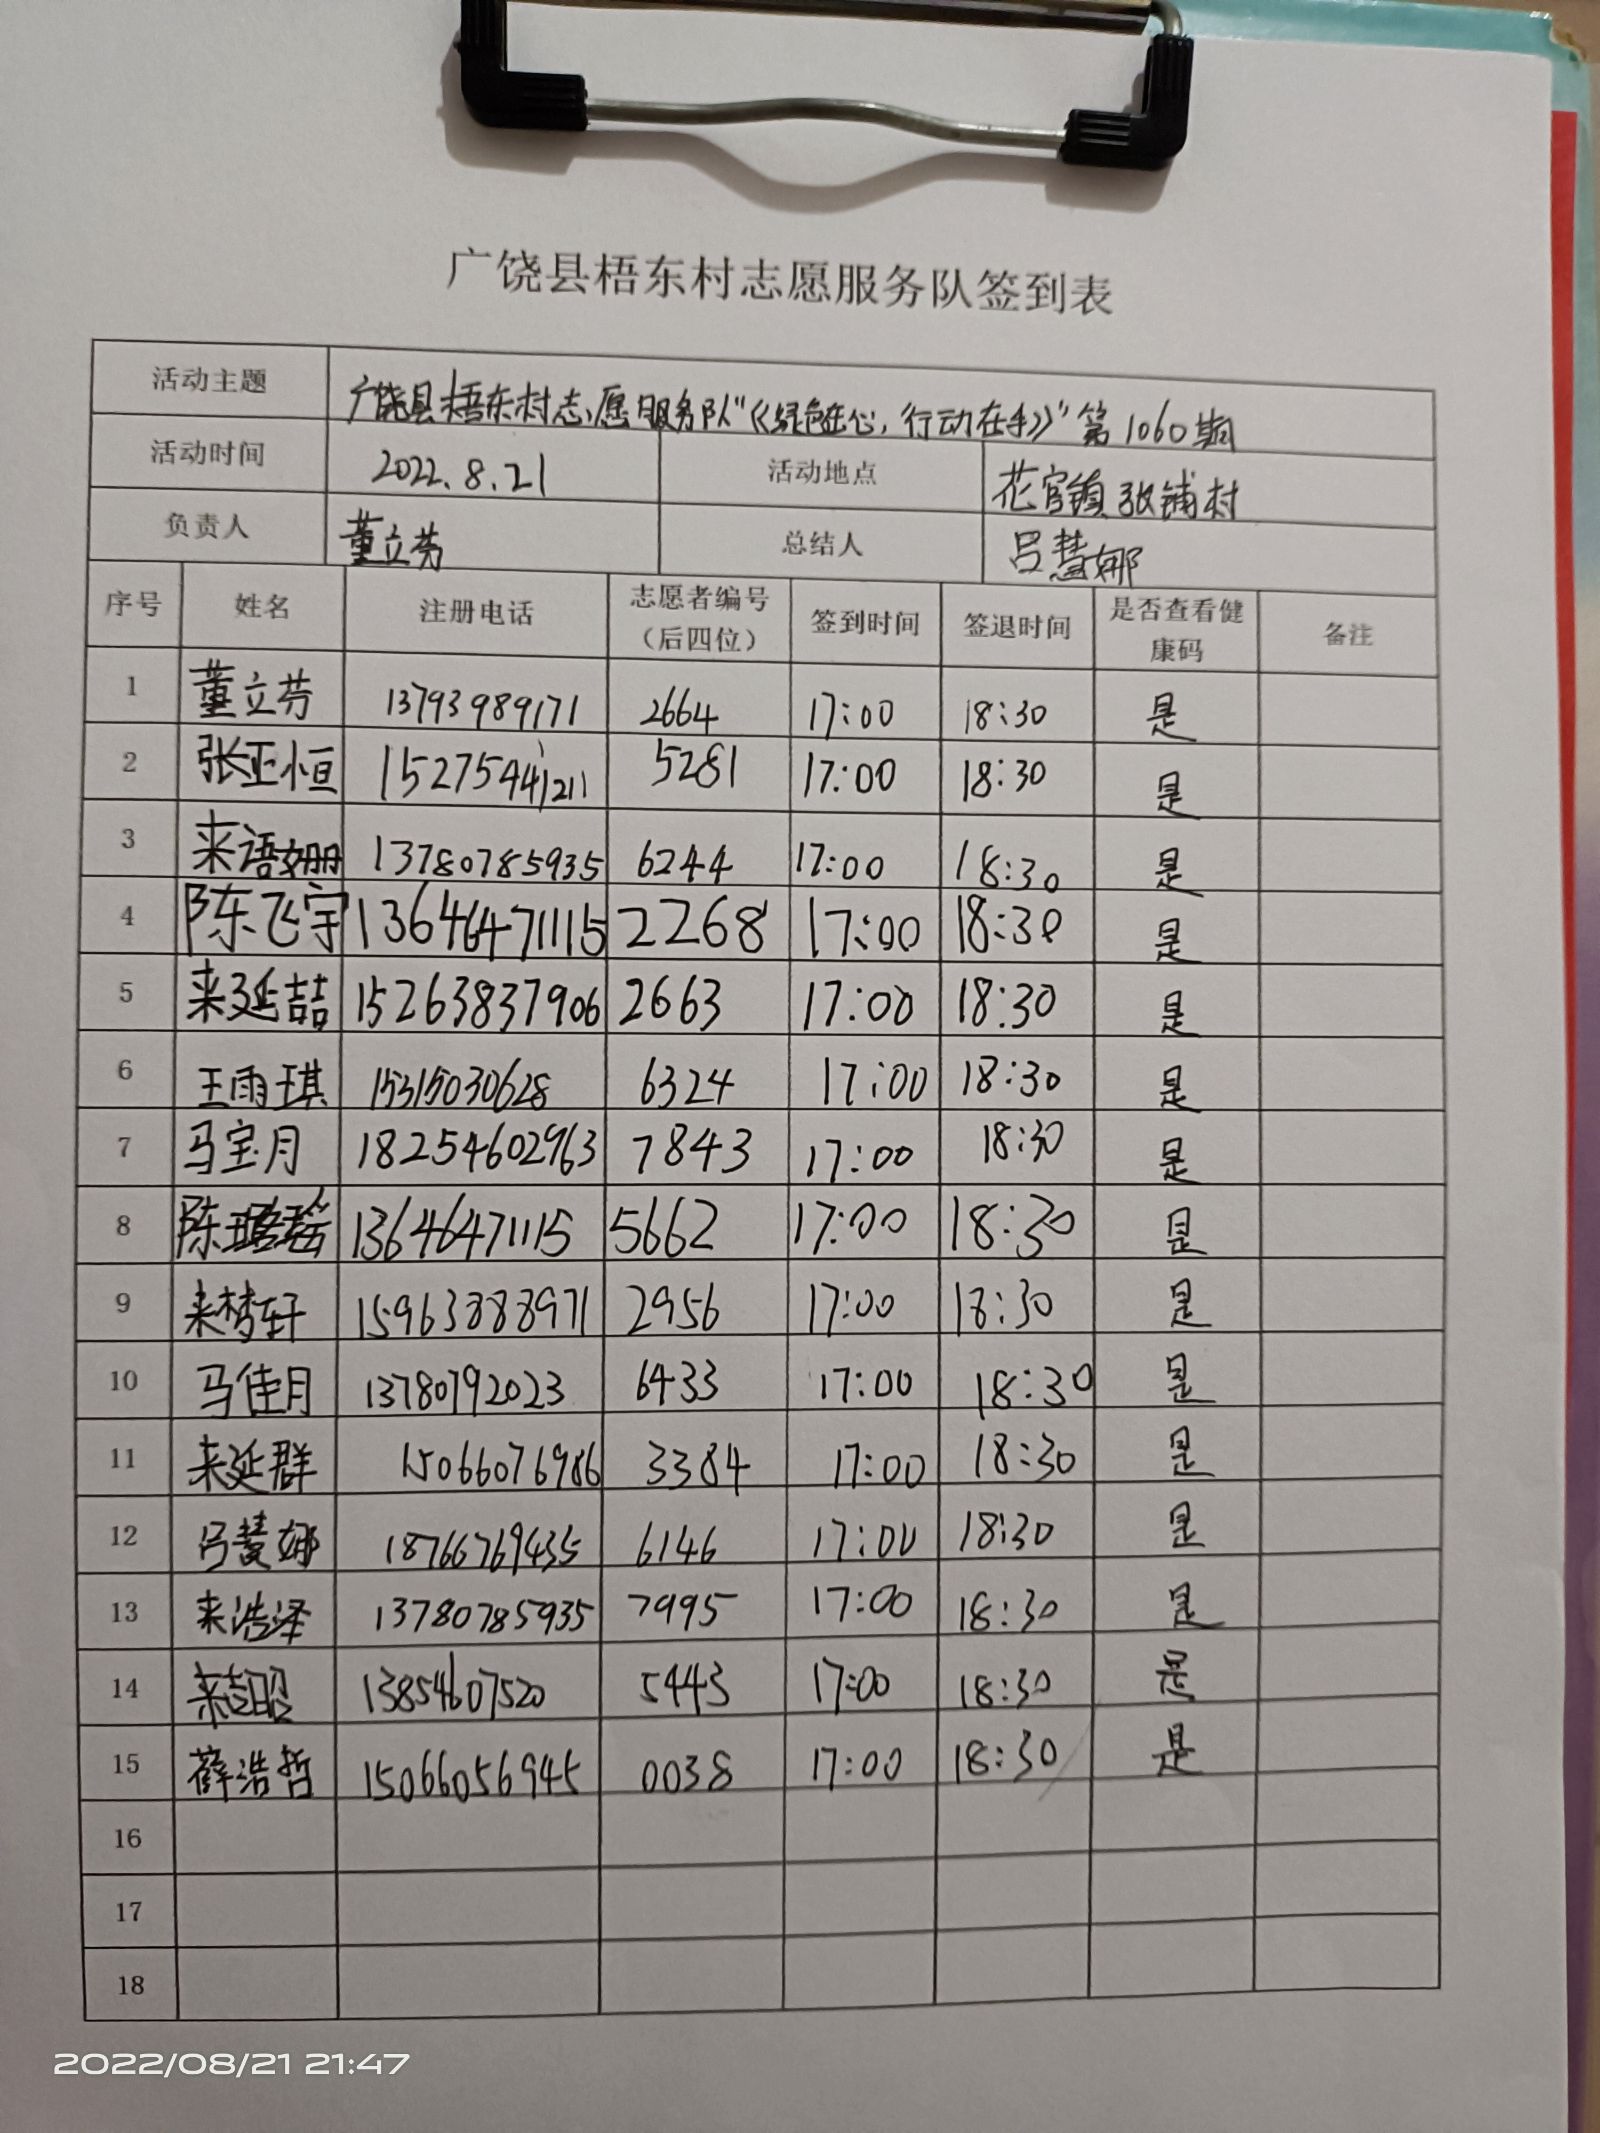 广饶县梧东村志愿服务队签到表
活动主题 广饶县梧东村志愿服务队“《绿色在心，行动在手》”第1060期
活动时间 2022.8.21 活动地点 花官镇张铺村
负责人 董立芬 总结人 吕慧娜
序号 姓名 注册电话 志愿者编号（后四位） 签到时间 签退时间 是否查看健康码 备注
1 董立芬 13793989171 2664 17:00 18:30 是
2 张正恒 5281 17:00 18:30 是
3 来语姗 13780785935 6244 17:00 18:30 是
4 陈飞宇 13646471115 2268 17:00 18:30 是
5 来延喆 15263837906 2663 17:00 18:30 是
6 王雨琪 15315030628 6324 17:00 18:30 是
7 马宝月 18254602963 7843 17:00 18:30 是
8 陈璐瑶 13646471115 5662 17:00 18:30 是
9 来梦轩 15963888971 2956 17:00 18:30 是
10 马佳月 13780792023 6433 17:00 18:30 是
11 来延群 15066076986 3384 17:00 18:30 是
12 吕慧娜 18766769435 6146 17:00 18:30 是
13 来浩泽 13780785935 7995 17:00 18:30 是
14 来志昭 13854607520 5443 17:00 18:30 是
15 薛浩哲 15066056945 0038 17:00 18:30 是
16
17
18
2022/08/21 21:47